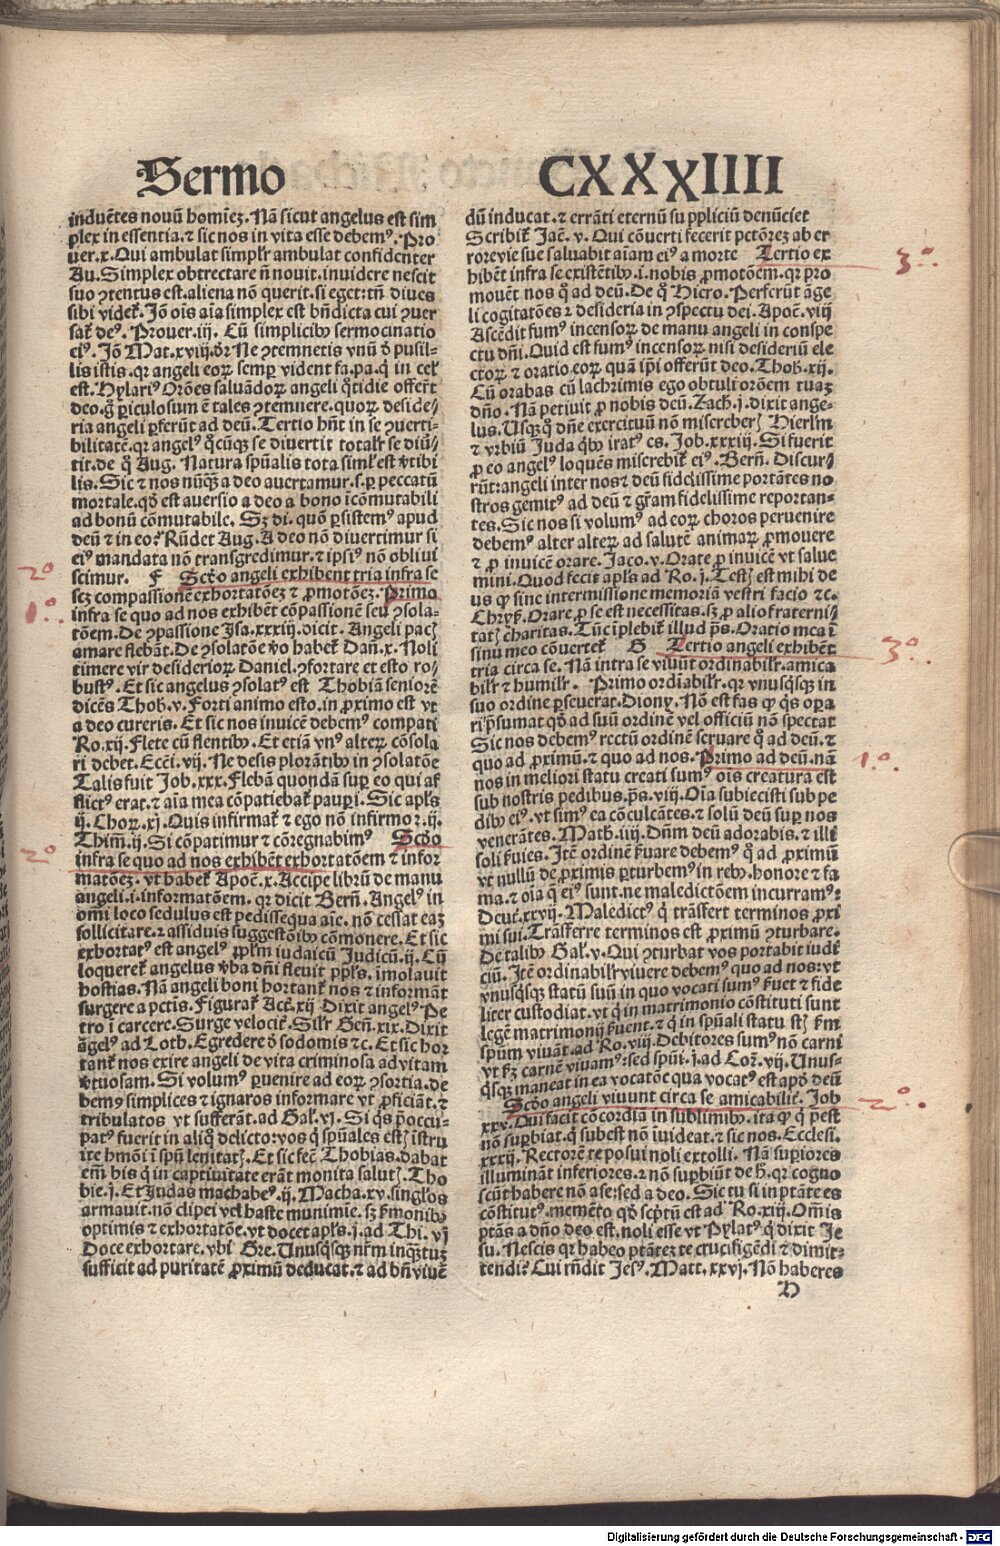 Sermo CXXXIIII
induētes nouū homieꝫ. Nā sicut angelus est sim
plex in essentia. ⁊ sic nos in vita esse debemꝰ. Pro
uer. x. Qui ambulat simplr̄ ambulat confidēter
Au. Simplex obtrectare ñ nouit. inuidere nescit
suo ꝯtentus est. aliena nō querit. si eget: tñ diues
sibi videt᷑. Iō oīs aīa simplex est bñdicta cui ꝯuer
sat᷑ deꝰ. Prouer. iij. Cū simplicibꝰ sermocinatio
eiꝰ. Iō Mat. xviij. dr̄ Ne ꝯtemnetis vnū ð pusil-
lis istis. qr angeli eoꝝ semꝑ vident fa. pa. q̄ in cel᷑
est. Hylariꝰ Orōes saluādoꝝ angeli q̄tidie offer̄t
deo. g̊ ꝑiculosum ē tales ꝯtemnere. quoꝝ deside/
ria angeli ꝑferūt ad deū. Tertio hñt in se ꝯuerti-
bilitatē. qr angelꝰ q̄cūqꝫ se diuertit totalr̄ se diū/
tit. de q̊ Aug. Natura spūalis tota siml᷑ est vtibi
lis. Sic ⁊ nos nūq̄ꝫ a deo auertamur. s. ꝑ peccatū
mortale. qð est auersio a deo a bono icōmutabili
ad bonū cōmutabile. Sꝫ di. quō ꝑsistemꝰ apud
deū ⁊ in eo? Rūdet Aug. A deo nō diuertimur si
eiꝰ mandata nō transgredimur. ⁊ ipsiꝰ nō obliui
scimur. F Scðo angeli exhibent tria infra se
seꝫ compassionē exhortatōeꝫ ⁊ ꝓmotōeꝫ. Primo
infra se quo ad nos exhibēt cōpassionē seu ꝯsola-
tōem. De ꝯpassione Isa. xxxiij. dicit. Angeli pacꝭ
amare flebāt. De ꝯsolatōe vo habet᷑ Dañ. x. Noli
timere vir desiderioꝝ Daniel. ꝯfortare et esto ro-
bustꝰ. Et sic angelus ꝯsolatꝰ est Thobiā seniorē
dicēs Thob. v. Forti animo esto. in ꝓximo est vt
a deo cureris. Et sic nos inuicē debemꝰ compati
Ro. xij. Flete cū flentibꝰ. Et etiā vnꝰ alteꝝ cōsola
ri debet. Ecc̄i. vij. Ne desis plorātibꝰ in ꝯsolatōe
Talis fuit Job. xxx. Flebā quondā suꝑ eo qui af
flictꝰ erat. ⁊ aīa mea cōpatiebat᷑ pauꝑi. Sic apls̄
ij. Choꝝ. xj. Quis infirmat᷑ ⁊ ego nō infirmor. ij.
Thim̄. ij. Si cōpatimur ⁊ cōregnabimꝰ Scðo
infra se quo ad nos exhibēt exhortatōem ⁊ infor
matōeꝫ. vt habet᷑ Apoc̄. x. Accipe librū de manu
angeli. i. informatōem. qr dicit Bern̄. Angelꝰ in
omi loco sedulus est pedissequa aīe. nō cessat eaꝫ
sollicitare. ⁊ assiduis suggestōibꝰ cōmonere. Et sic
exhortatꝰ est angelꝰ ppl̄m iudaicū Judicū. ij. Cū
loqueret᷑ angelus v̄ba dn̄i fleuit ppl̄s. īmolauit
hostias. Nā angeli boni hortant᷑ nos ⁊ informāt
surgere a pctīs. Figurat᷑ Act᷑. xij Dixit angelꝰ Pe
tro ī carcere. Surge velocit᷑. Silr̄ Gen̄. xix. Dixit
āgelꝰ ad Loth. Egredere ð sodomis ⁊c. Et sic hor
tant᷑ nos exire angeli de vita criminosa ad vitam
v̄tuosam. Si volumꝰ ꝑuenire ad eoꝝ ꝯsortia. de
bemꝰ simplices ⁊ ignaros informare vt ꝓficiāt. ⁊
tribulatos vt sufferāt. ad Gal᷑. vj. Si qͥs p̄occu-
patꝰ fuerit in aliq̊ delicto: vos q̇ spūales estꝭ istru
ite hmōi ī spū lenitatꝭ. Et sic fec̄ Thobias. dabat
em̄ his q̇ in captiuitate erāt monita salutꝭ. Tho
bie. j. Et Judas machabeꝰ. ij. Macha. xv. singl᷑os
armauit. nō clipei vel haste munimīe. sꝫ ẜmonibꝰ
optimis ⁊ exhortatōe. vt docet apls̄. j. ad Thi. vj
Doce exhortare. vbi Gre. Unusqͥsqꝫ nr̄m inq̄ꝫtuꝫ
sufficit ad puritatē ꝓximū deducat. ⁊ ad bñ viuē
dū inducat. ⁊ errāti eternū suppliciū denūciet
Scribit᷑ Jac̄. v. Qui cōuerti fecerit pctōreꝫ ab er
rore vie sue saluabit aīam eiꝰ a morte Tertio ex
hibēt infra se existētibꝰ. i. nobis ꝓmotōem. qr pro
mouēt nos q̊ ad deū. De q̊ Hiero. Perferūt āge
li cogitatōes ⁊ desideria in ꝯspectu dei. Apoc̄. viij
Ascēdit fumꝰ incensoꝝ de manu angeli in conspe
ctu dn̄i. Quid est fumꝰ incensoꝝ nisi desideriū ele
ctoꝝ ⁊ oratio eoꝝ quā ip̄i offerūt deo. Thob. xij.
Cū orabas cū lachrimis ego obtuli orōem tuaꝫ
dn̄o. Nā petiuit ꝓ nobis deū. Zach. j. dixit ange-
lus. Usqꝫq̊ dn̄e exercituū nō misereberꝭ Hierl᷑m
⁊ vrbiū Juda qͥbꝰ iratꝰ es. Job. xxxiij. Si fuerit
ꝓ eo angelꝰ loquēs miserebit᷑ eiꝰ. Bern̄. Discur/
rūt angeli inter nos ⁊ deū fidelissime portātes no
stros gemitꝰ ad deū ⁊ gr̄am fidelissime reportan-
tes. Sic nos si volumꝰ ad eoꝝ choros peruenire
debemꝰ alter alteꝝ ad salutē animaꝝ ꝓmouere
⁊ ꝓ inuicē orare. Jaco. v. Orate ꝓ inuicē vt salue
mini. Quod fecit apls̄ ad Ro. j. Testꝭ est mihi de
us ꝙ sine intermissione memoriā vestri facio ⁊c.
Chryſ. Orare ꝓ se est necessitas. sꝫ ꝓ alio fraterni/
tatꝭ charitas. Tūc īplebit᷑ illud ps̄. Oratio mea ī
sinu meo cōuertet᷑ G Tertio angeli exhibēt
tria circa se. Nā intra se viuūt ordinabilr̄. amica
bilr̄ ⁊ humilr̄. Primo ordīabilr̄. qr vnusqͥsqꝫ in
suo ordine ꝑseuerat. Diony. Nō est fas ꝙ qͥs oꝑa
ri p̄sumat qð ad suū ordinē vel officiū nō spectat
Sic nos debemꝰ rectū ordinē seruare q̊ ad deū. ⁊
quo ad ꝓximū. ⁊ quo ad nos. Primo ad deū. nā
nos in meliori statu creati sumꝰ. oīs creatura est
sub nostris pedibus. ps̄. viij. Oīa subiecisti sub pe
dibꝰ eiꝰ. vt simꝰ ea cōculcātes. ⁊ solū deū suꝑ nos
venerātes. Math. iiij. Dn̄m deū adorabis. ⁊ illi
soli ẜuies. Itē ordinē ẜuare debemꝰ q̊ ad ꝓximū
vt nullū de ꝓximis ꝑturbemꝰ in rebꝰ. honore ⁊ fa
ma. ⁊ oīa q̄ eiꝰ sunt. ne maledictōem incurramꝰ:
Deut᷑. xxvij. Maledictꝰ q̇ trāsfert terminos ꝓxi
mi sui. Trāsferre terminos est ꝓximū ꝯturbare.
De talibꝰ Gal᷑. v. Qui ꝯturbat vos portabit iudi
ciū. Itē ordinabilr̄ viuere debemꝰ quo ad nos: vt
vnusqͥsqꝫ statū suū in quo vocati sumꝰ ẜuet ⁊ fide
liter custodiat. vt q̇ in matrimonio cōstituti sunt
legē matrimonij ẜuent. ⁊ q̇ in spūali statu stꝭ ẜm
spūm viuāt. ad Ro. viij. Debitores sumꝰ nō carni
vt ẜꝫ carnē viuamꝰ: sed spūi. j. ad Cor̄. vij. Unus-
qͥsqꝫ maneat in ea vocatōe qua vocatꝰ est apð deū
Scðo angeli viuunt circa se amicabilit᷑. Job
xxv. Qui facit cōcordiā in sublimibꝰ. ita ꝙ q̇ p̄est
nō suꝑbiat. q̇ subest nō īuideat. ⁊ sic nos. Ecclesi.
xxxij. Rectorē te posui noli extolli. Nā suꝑiores
illumināt inferiores. ⁊ nō suꝑbiūt de h̊. qr cogno
scūt habere nō a se: sed a deo. Sic tu si in ptāte es
cōstitutꝰ. memēto qð scptū est ad Ro. xiij. Om̄is
ptās a dn̄o deo est. noli esse vt Pylatꝰ q̇ dixit Je
su. Nescis qr habeo ptātē te crucifigēdi ⁊ dimit-
tendi? Cui rñdit Jesꝰ. Matt. xxvj. Nō haberes
H
2°
1°.
2°
3°.
3°.
1°.
2°.
Digitalisierung gefördert durch die Deutsche Forschungsgemeinschaft - DFG